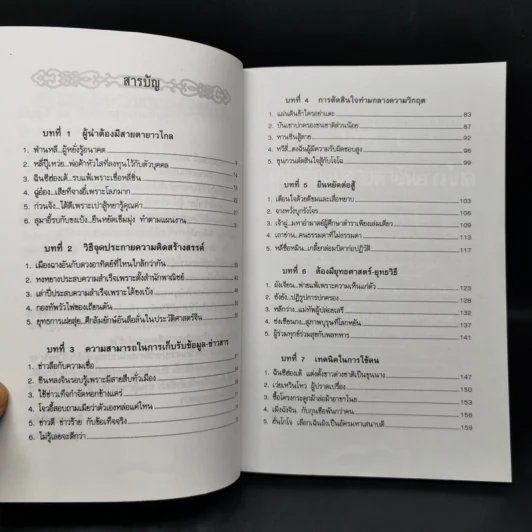 สารบัญ
บทที่ 1 ผู้นำต้องมีสายตายาวไกล
1. ฟ่านหลี...ผู้หยั่งรู้อนาคต
2. หลี่ปู้เหว่ย...พ่อค้าหัวใสที่ลงทุนไว้กับตัวบุคคล
3. ฉินซีฮ่องเต้...รบแพ้เพราะเชื่อหลี่ซิ่น
4. ฉู่อ๋อง...เสียทีจางอี้เพราะโลภมาก
5. ก่วนจ้ง...ได้ดีเพราะเปาสู้หยารู้คุณค่า
6. สุมาอี้รบกับขงเบ้ง...ยืนหยัดเข้มมุ่ง ทำตามแผนงาน
บทที่ 2 วิธีจุดประกายความคิดสร้างสรรค์
1. เมืองฉางอันกับดวงอาทิตย์ที่ไหนใกล้กว่ากัน
2. หงหยางประสบความสำเร็จเพราะตั้งสำนักพาณิชย์
3. เล่าปี่ประสบความสำเร็จเพราะได้ขงเบ้ง
4. กองทัพวัวไฟของเถียนตัน
5. ยุทธการเฝยสุ่ย...ศึกลัมยักษ์อันลือลั่นในประวัติศาสตร์จีน
บทที่ 3 ความสามารถในการเก็บรับข้อมูล-ข่าวสาร
1. ข่าวลือกับความเชื่อ
2. ชินหลงจินรอบรู้เพราะมีสายสืบทั่วเมือง
3. ใช้ข่าวเท็จกำจัดหอกข้างแคร่
4. โจวอี้สอบถามเมียว่าตัวเองหล่อแค่ไหน
5. ข่าวดี ข่าวร้าย กับข้อเท็จจริง
6. ไม่รู้เลยจะดีกว่า
บทที่ 4 การตัดสินใจท่ามกลางความวิกฤต
1. แผ่นดินช้าใครอย่าแตะ 83
2. บันเชาปกครองชนชาติส่วนน้อย 91
3. หานซินสู้ตาย 94
4. หวีลี่...ตงฉินผู้มีความรับผิดชอบสูง 96
5. ขุนกวนตัดสินใจสู้กับโจโฉ 99
บทที่ 5 ยืนหยัดต่อสู้
1. เตือนใจด้วยดีขมและเสื่อหยาบ 103
2. จางหวังบุกรังโจร 105
3. เจ้าผู่...มหาอำมาตย์ผู้ศึกษาตำราเพียงเล่มเดียว 109
4. เถาข่าน...คนธรรมดาที่ไม่ธรรมดา 113
5. หลี่ซื่อหมิน...เกลี้ยกล่อมบิดาก่อปฏิวัติ 117
บทที่ 6 ต้องมียุทธศาสตร์-ยุทธวิธี
1. ผังเจียน...พ่ายแพ้เพราะความเห็นแก่ตัว 123
2. ซังยัง...ปฏิรูปการปกครอง 128
3. หลักว่าง...แม่ทัพผู้ปล่อยเสรี 132
4. ซ่งเซียนกง...สุภาพบุรุษที่โลกหยัน 137
5. ผู้ร่วมทุกข์ร่วมสุขกับพลทหาร 142
บทที่ 7 เทคนิคในการใช้คน
1. ฉินซีฮ่องเต้ แต่งตั้งชาวต่างชาติเป็นขุนนาง 147
2. เว่ยเหวินโหว ผู้ปราดเปรื่อง 151
3. ซื้อโครงกระดูกม้าล่อม้าอาชาไนย 154
4. เมิ่งฉังจิน กับกุนซือพันกว่าคน 156
5. ฮั่นโกโจ เลือกเฉินผิงเป็นอัครมหาเสนาบดี 159